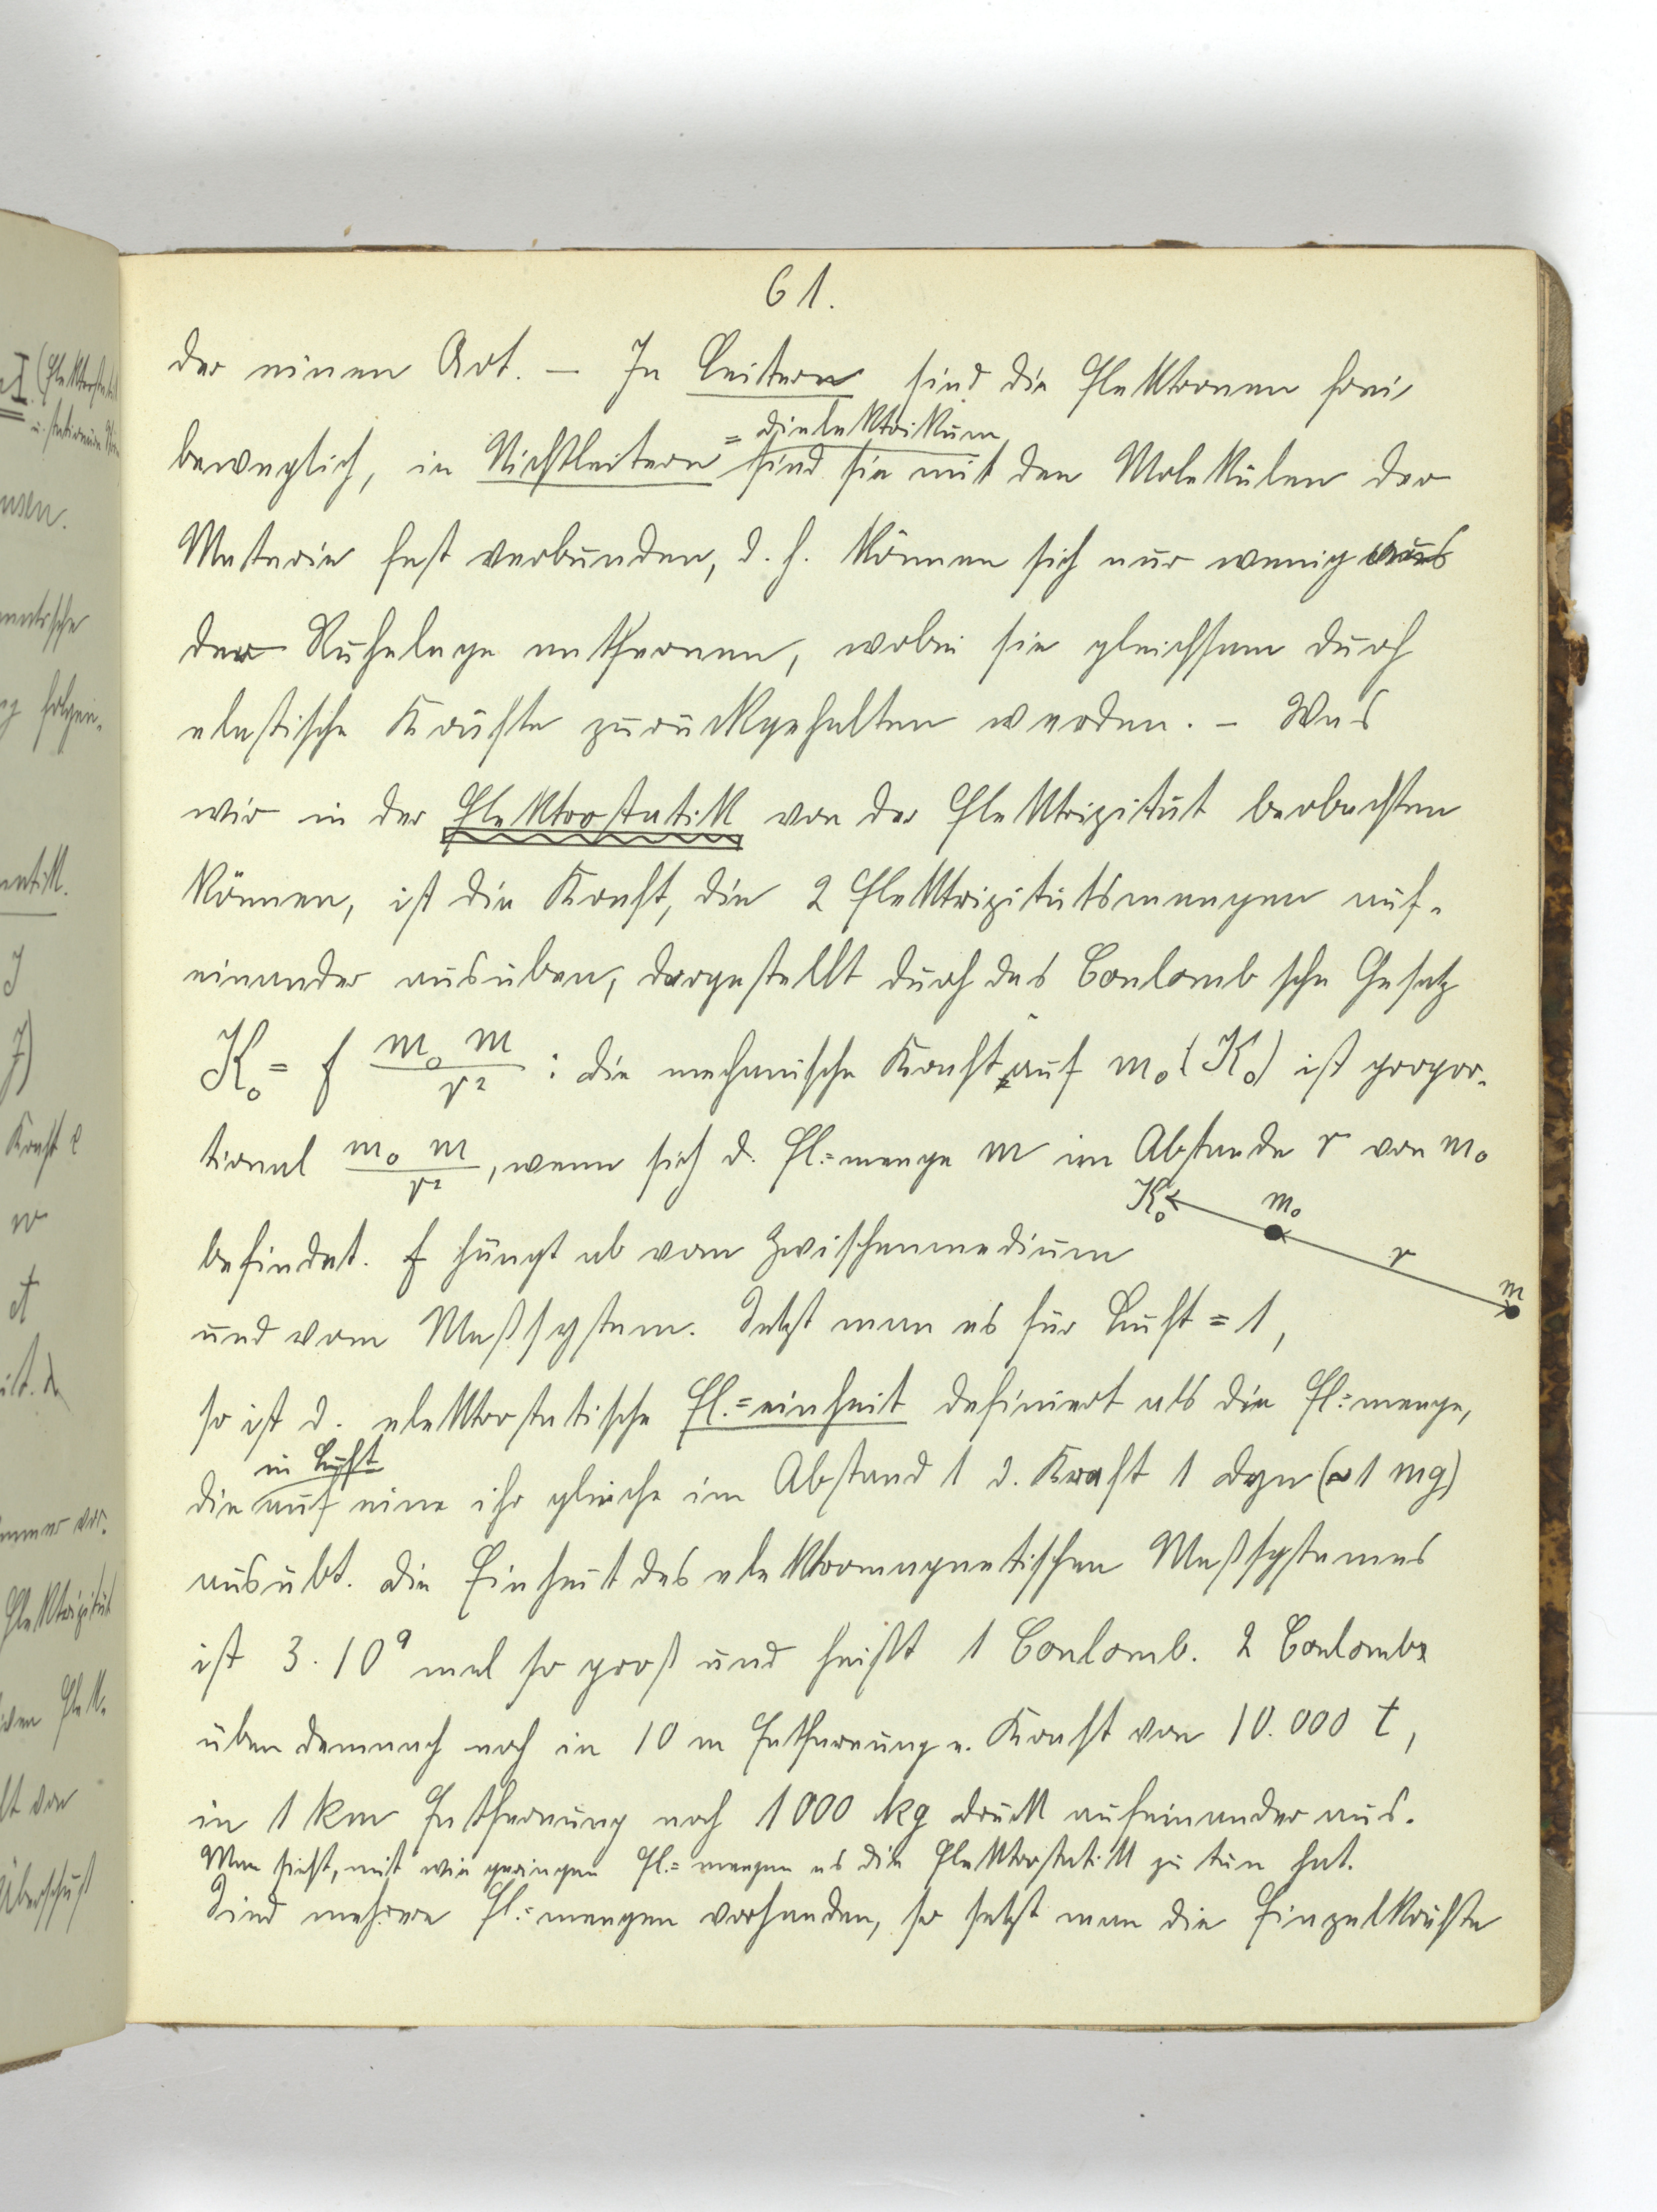 61.
der einen Art. — In Leitern sind die Elektronen frei
= Dielektrikum
beweglich, in Nichtleitern sind sie mit den Molekülen der
Materie fest verbunden, d. h. können sich nur wenig aus
der Ruhelage entfernen, wobei sie gleichsam durch
elastische Kräfte zurückgehalten werden. – Was
wir in der Elektrostatik von der Elektrizität beobachten
können, ist die Kraft, die 2 Elektrizitätsmengen auf-
einander ausüben, dargestellt durch das Coulomb sche Gesetz
K₀ = f m₀ m / r² : die mechanische Kraft auf m₀ (K₀) ist propor-
tional m₀ m / r², wenn sich d. El.=menge m im Abstande r von m₀
K₀ m₀ r m
befindet. f hängt ab vom Zwischenmedium
und vom Maßsystem. Setzt man es für Luft = 1,
so ist d. elektrostatische El.=einheit definiert als die El.=menge,
in Luft
die auf eine ihr gleiche im Abstand 1 d. Kraft 1 Dyn (~1 mg)
ausübt. Die Einheit des elektromagnetischen Maßsystemes
ist 3. 10⁹ mal so groß und heißt 1 Coulomb. 2 Coulombs
üben demnach noch in 10 m Entfernung e. Kraft von 10.000 t,
in 1 km Entfernung noch 1000 kg Druck aufeinander aus.
Man sieht, mit wie geringen El.=mengen es die Elektrostatik zu tun hat.
Sind mehrere El.=mengen vorhanden, so setzt man die Einzelkräfte